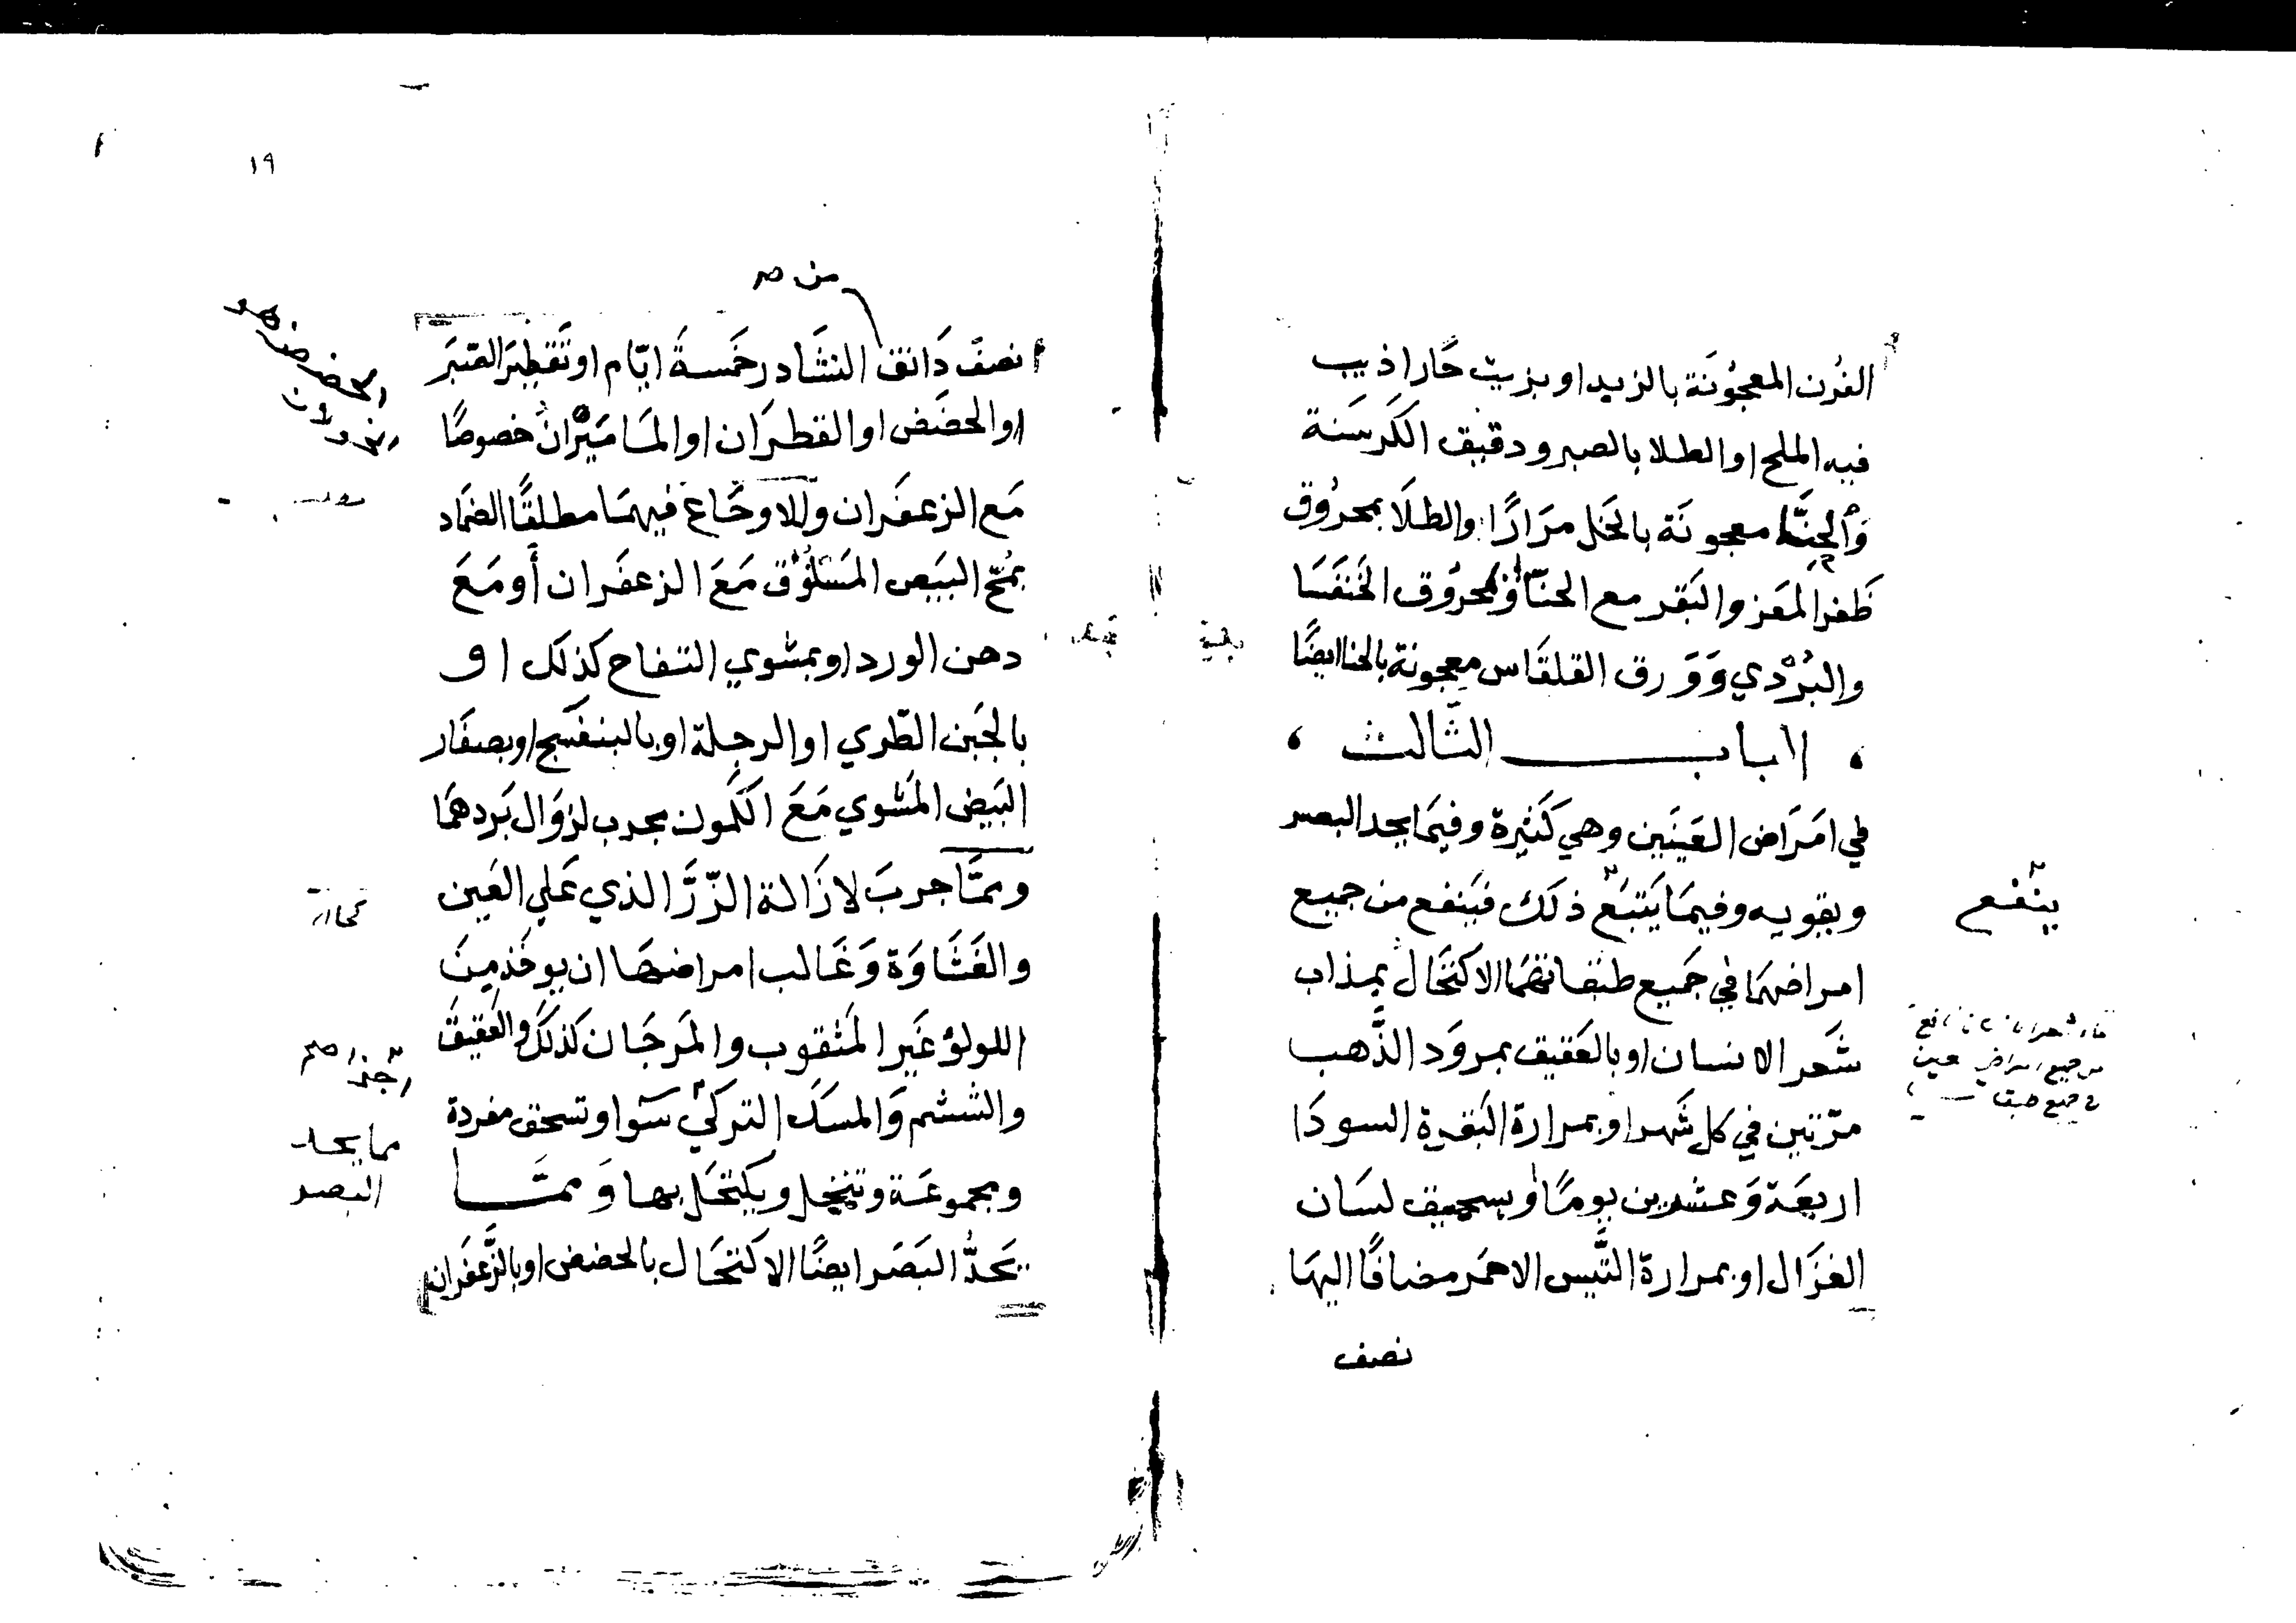 الفرن المعجونة بالزبد او بزيت حار اذيب
فيه الملح او الطلا بالصبر ودقيق الكرسنة
والحنا معجونة بالخل مرارًا والطلا بمحروق
ظفر المعز والبقر مع الحنا وبمحروق الخنفسا
والبردي وورق القلقاس معجونة بالحنا ايضًا
الباب الثالث
في امراض العينين وهي كثيرة وفيما يحد البصر
ويقويه وفيما يتبع ذلك فينفع من جميع
امراضهما في جميع طبقاتهما الاكتحال بمذاب
شعر الانسان او بالعقيق بمرود الذهب
مرتين في كل شهر او بمرارة البقرة السودا
اربعة وعشرين يومًا او بسحيق لسان
الغزال او بمرارة التيس الاحمر مضافًا اليها
نصف
ينفع
١٩
من صر
نصف دانق النشادر خمسة ايام او تقطير الصبر
او الحضض او القطران او الماميران خصوصًا
مع الزعفران وللاوجاع فيهما مطلقًا الضماد
بمح البيض المسلوق مع الزعفران أو مع
دهن الورد او بمشوي التفاح كذلك او
بالجبن الطري او الرجلة او بالبنفسج او بصفار
البيض المشوي مع الكمون مجرب لزوال بردهما
ومما جرب لازالة الزر الذي علي العين
والغشاوة وغالب امراضها ان يوخذ من
اللولؤ غير المثقوب والمرجان كذلك والعقيق
والششم والمسك التركي سوا وتسحق مفردة
ومجموعة وتنخل ويكتحل بها ومما
يحد البصر ايضًا الاكتحال بالحضض او بالزعفران
مما يحد
البصر